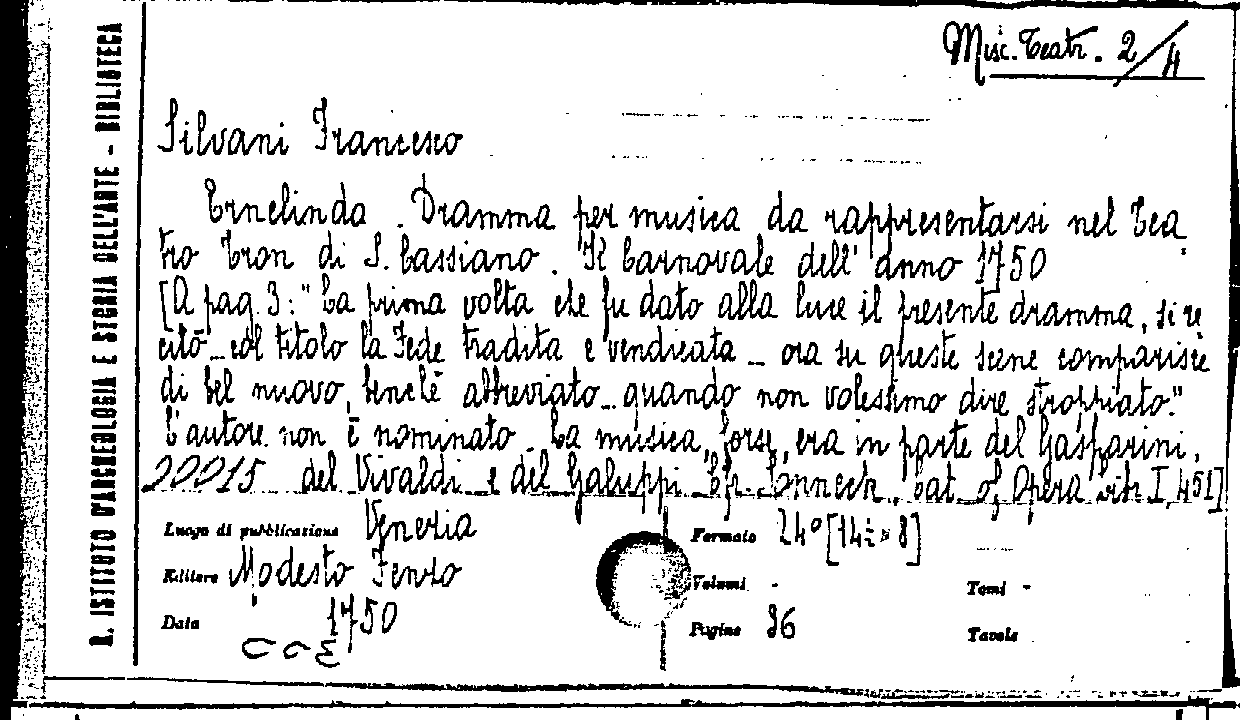 Misc. Teatr. 2/4
R. ISTITUTO D'ARCHEOLOGIA E STORIA DELL'ARTE - BIBLIOTECA
Silvani Francesco
Ernelinda. Dramma per musica da rappresentarsi nel Tea
tro Tron di S. Cassiano. Il Carnovale dell'anno 1750
[A pag. 3: "La prima volta che fu dato alla luce il presente dramma, si re
citò - col titolo la Fede tradita e vendicata - ora su queste scene comparisce
di bel nuovo, benchè abbreviato - quando non volessimo dire stroppiato."
L'autore non è nominato. La musica, forse, era in parte del Gasparini,
20015 del Vivaldi e del Galuppi. Cfr. Sonneck. Cat. of Opera Libr I, 451]
Luogo di pubblicazione Venezia
Formato 24° [14½ x 8]
Editore Modesto Fenzo
Volumi -
Tomi -
Data 1750
Pagine 36
Tavole